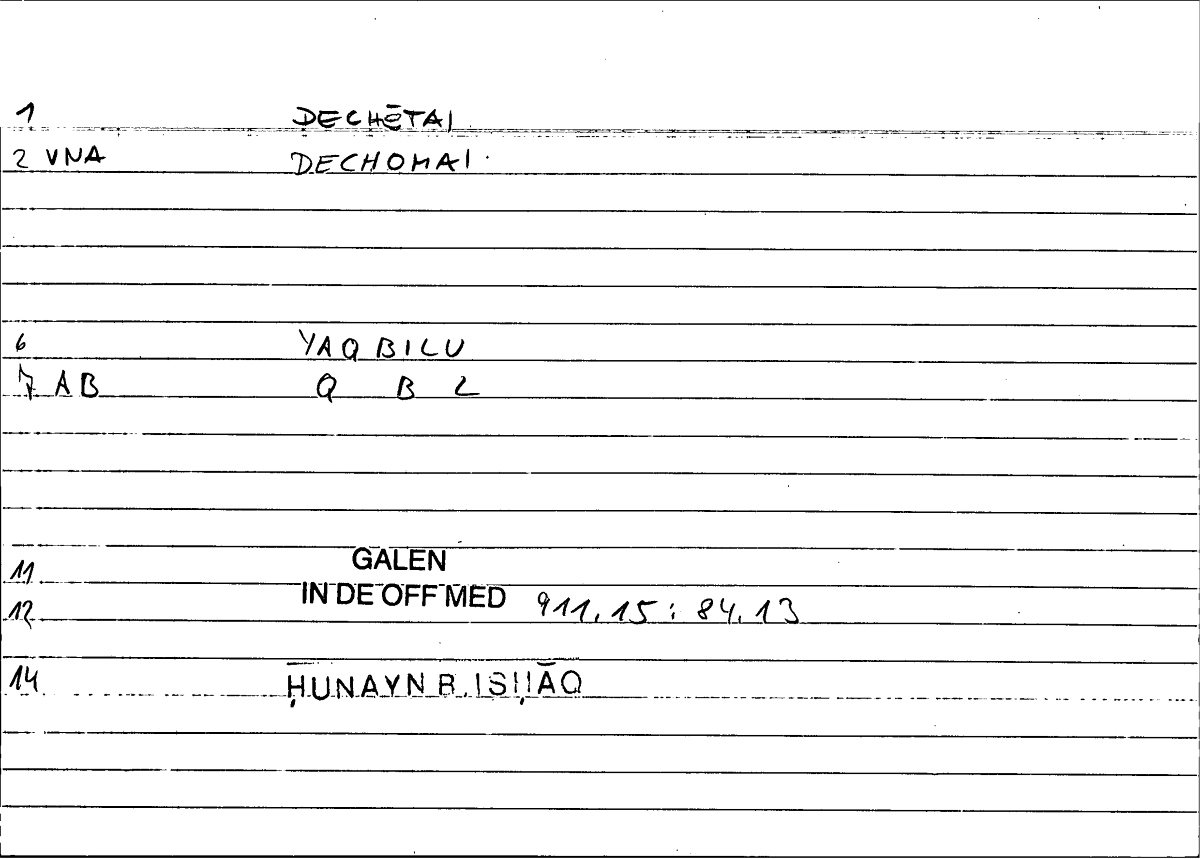 1 DECHĒTAI
2 VNA DECHOMAI
6 YAQBILU
7 AB Q B L
GALEN
11
IN DE OFF MED 911.15 : 84.13
12
14 ḤUNAYN B. ISḤĀQ